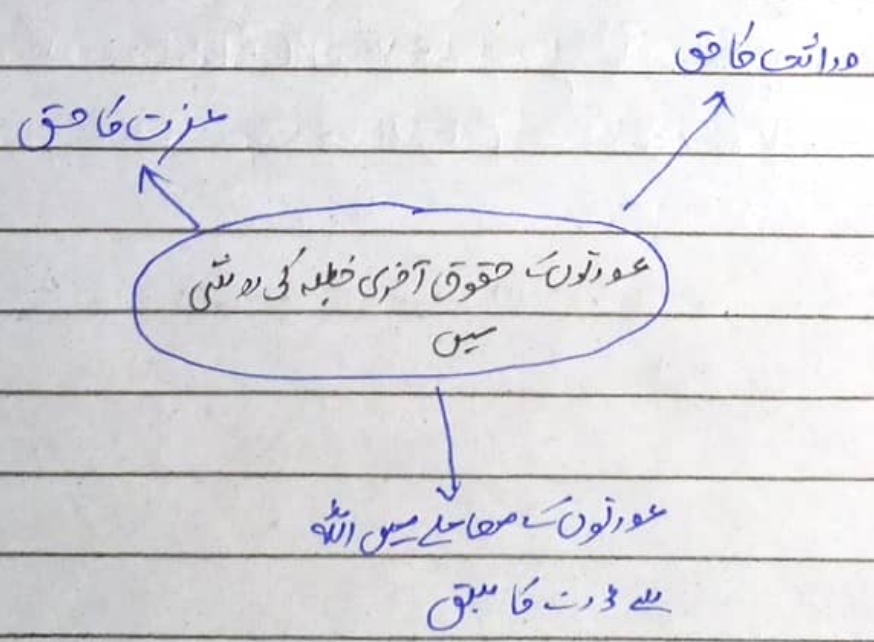 وراثت کا حق
عزت کا حق
عورتوں کے حقوق آخری خطبہ کی روشنی
میں
عورتوں کے معاملے میں اللہ
سے ڈرنے کا سبق